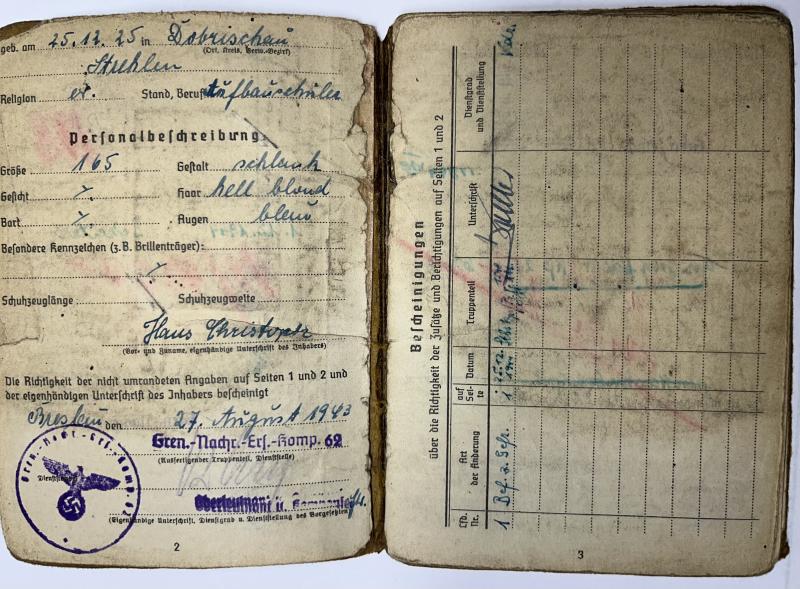 geb. am 25.12.25 in Dobrischau
(Ort, Kreis, Verw.-Bezirk)
Strehlen
Religion ev. Stand, Beruf Aufbauschüler
Personalbeschreibung
Größe 165 Gestalt schlank
Gesicht Haar hell blond
Bart Augen blau
Besondere Kennzeichen (z. B. Brillenträger):
Schuhzeuglänge Schuhzeugweite
Hans Christoph
(Vor- und Zuname, eigenhändige Unterschrift des Inhabers)
Die Richtigkeit der nicht umrandeten Angaben auf Seiten 1 und 2 und
der eigenhändigen Unterschrift des Inhabers bescheinigt
Breslau den 27. August 1943
Gren.-Nachr.-Ers.-Komp. 62
(Ausfertigender Truppenteil, Dienststelle)
Gren.-Nachr.-Ers.-Komp. 62
Dienststempel
Oberleutnant u.
(Eigenhändige Unterschrift, Dienstgrad u. Dienststellung des Vorgesetzten)
2
Bescheinigungen
über die Richtigkeit der Zusätze und Berichtigungen auf Seiten 1 und 2
Lfd. Nr.
Art der Änderung
auf Seite
Datum
Truppenteil
Unterschrift
Dienstgrad und Dienststellung
1 Bef. z. Gefr. 1
3